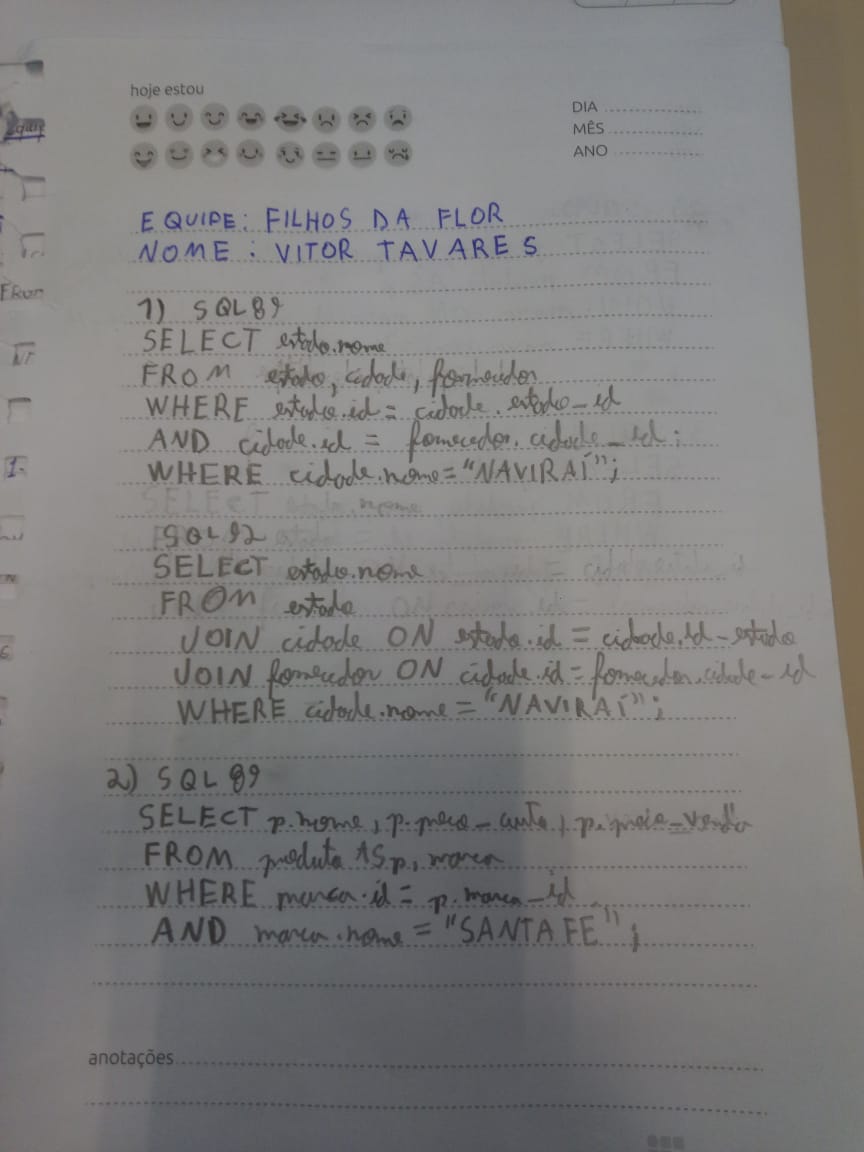 hoje estou
DIA
MÊS
ANO
EQUIPE: FILHOS DA FLOR
NOME: VITOR TAVARES
1) SQL89
SELECT estado.nome
FROM estado, cidade, fornecedor
WHERE estado.id = cidade.estado_id
AND cidade.id = fornecedor.cidade_id;
WHERE cidade.nome="NAVIRAÍ";
SQL92
SELECT estado.nome
FROM estado
JOIN cidade ON estado.id = cidade.id_estado
JOIN fornecedor ON cidade.id = fornecedor.cidade_id
WHERE cidade.nome="NAVIRAÍ";
2) SQL 89
SELECT p.nome, p.preco_custo, p.preco_venda
FROM produto AS p, marca
WHERE marca.id = p.marca_id
AND marca.nome = "SANTA FE";
anotações